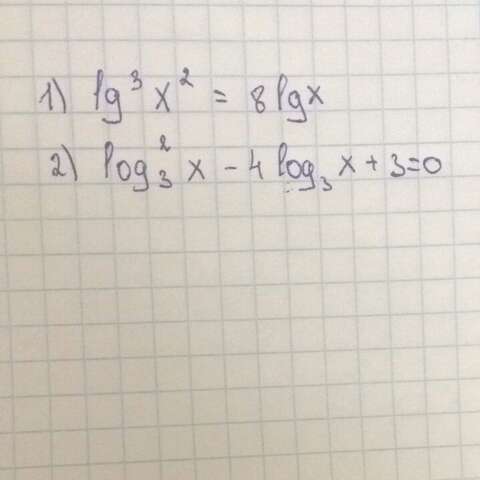 1) lg³ x² = 8 lg x
2) log₃² x - 4 log₃ x + 3 = 0